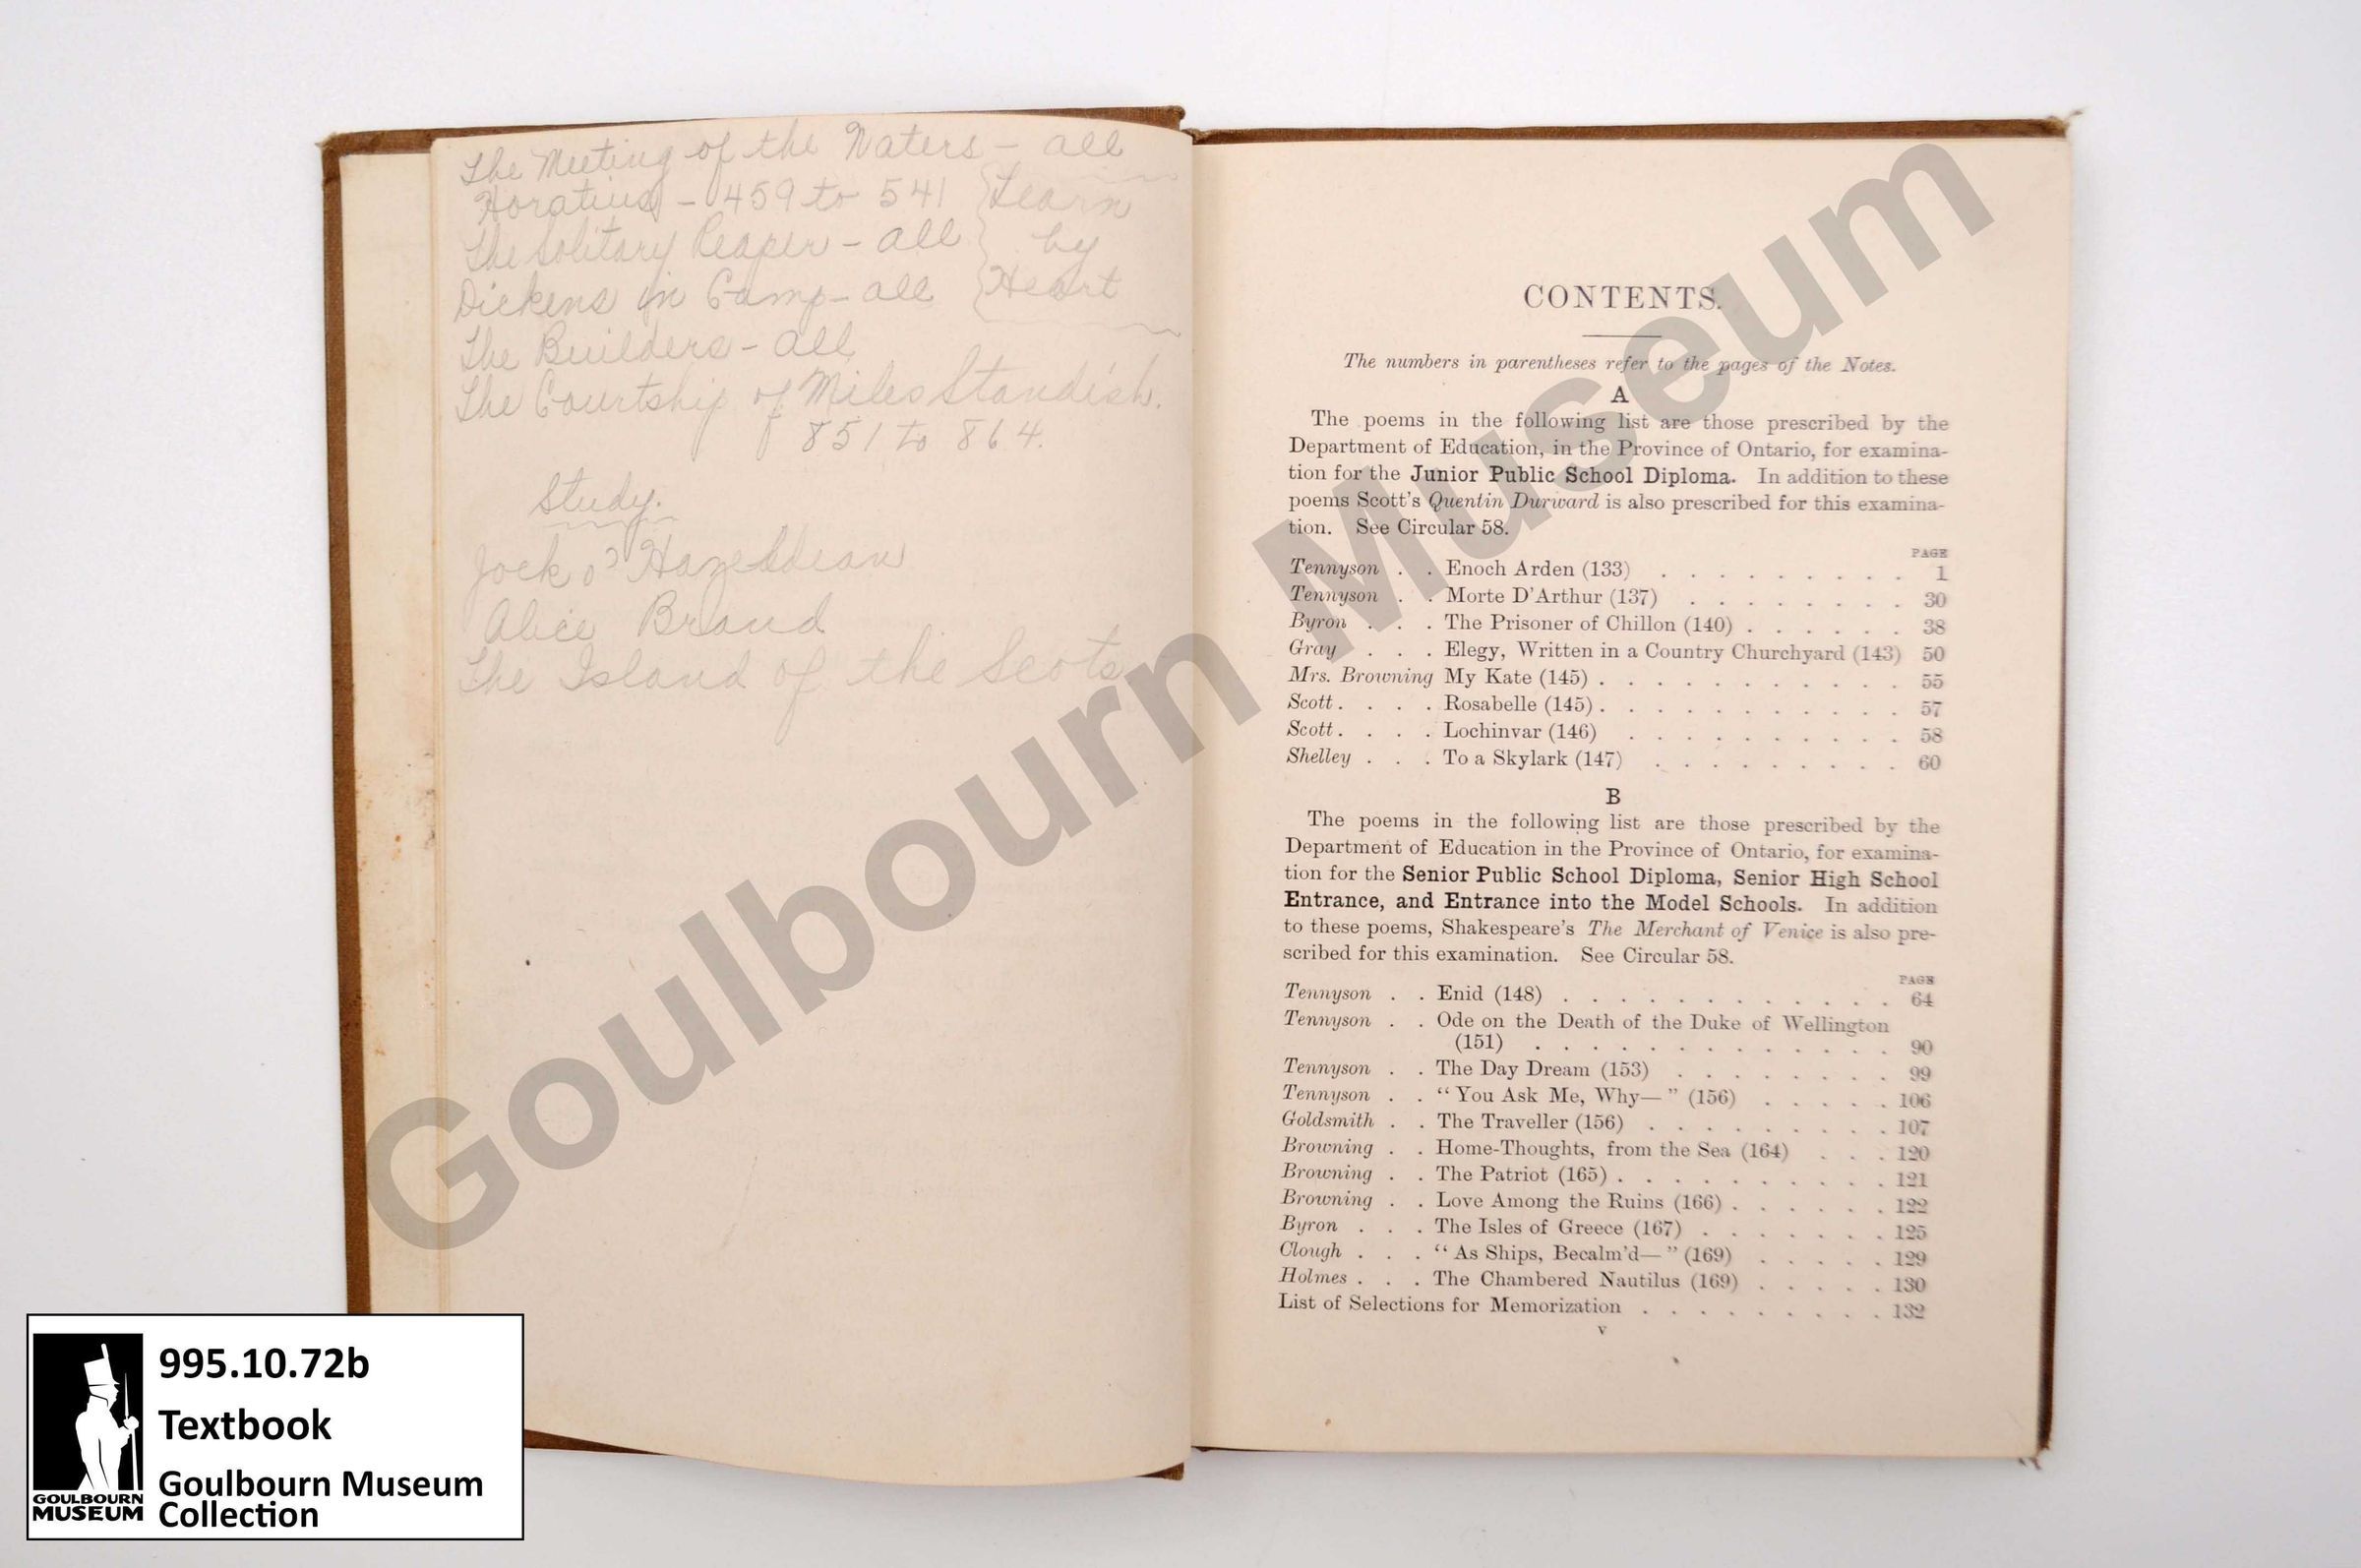 The Meeting of the Waters - all
Horatius - 459 to 541 Learn
The Solitary Reaper - all by
Dickens in Camp - all Heart
The Builders - all
The Courtship of Miles Standish.
851 to 864.
Study.
Jock o' Hazeldean
Alice Brand
The Island of the Scots
CONTENTS.
The numbers in parentheses refer to the pages of the Notes.
A
The poems in the following list are those prescribed by the
Department of Education, in the Province of Ontario, for examina-
tion for the Junior Public School Diploma. In addition to these
poems Scott's Quentin Durward is also prescribed for this examina-
tion. See Circular 58.
PAGE
Tennyson . . Enoch Arden (133) . . . . . . . . . 1
Tennyson . . Morte D'Arthur (137) . . . . . . . . 30
Byron . . . The Prisoner of Chillon (140) . . . . . . 38
Gray . . . Elegy, Written in a Country Churchyard (143) 50
Mrs. Browning My Kate (145) . . . . . . . . . . . 55
Scott . . . . Rosabelle (145) . . . . . . . . . . . 57
Scott . . . . Lochinvar (146) . . . . . . . . . . 58
Shelley . . . To a Skylark (147) . . . . . . . . . 60
B
The poems in the following list are those prescribed by the
Department of Education in the Province of Ontario, for examina-
tion for the Senior Public School Diploma, Senior High School
Entrance, and Entrance into the Model Schools. In addition
to these poems, Shakespeare's The Merchant of Venice is also pre-
scribed for this examination. See Circular 58.
PAGE
Tennyson . . Enid (148) . . . . . . . . . . . . 64
Tennyson . . Ode on the Death of the Duke of Wellington
(151) . . . . . . . . . . . . . 90
Tennyson . . The Day Dream (153) . . . . . . . . 99
Tennyson . . "You Ask Me, Why—" (156) . . . . . 106
Goldsmith . . The Traveller (156) . . . . . . . . . 107
Browning . . Home-Thoughts, from the Sea (164) . . . 120
Browning . . The Patriot (165) . . . . . . . . . . 121
Browning . . Love Among the Ruins (166) . . . . . . 122
Byron . . . The Isles of Greece (167) . . . . . . . 125
Clough . . . "As Ships, Becalm'd—" (169) . . . . . 129
Holmes . . . The Chambered Nautilus (169) . . . . . 130
List of Selections for Memorization . . . . . . . . . 132
v
Goulbourn Museum
995.10.72b
Textbook
Goulbourn Museum
Collection
GOULBOURN
MUSEUM